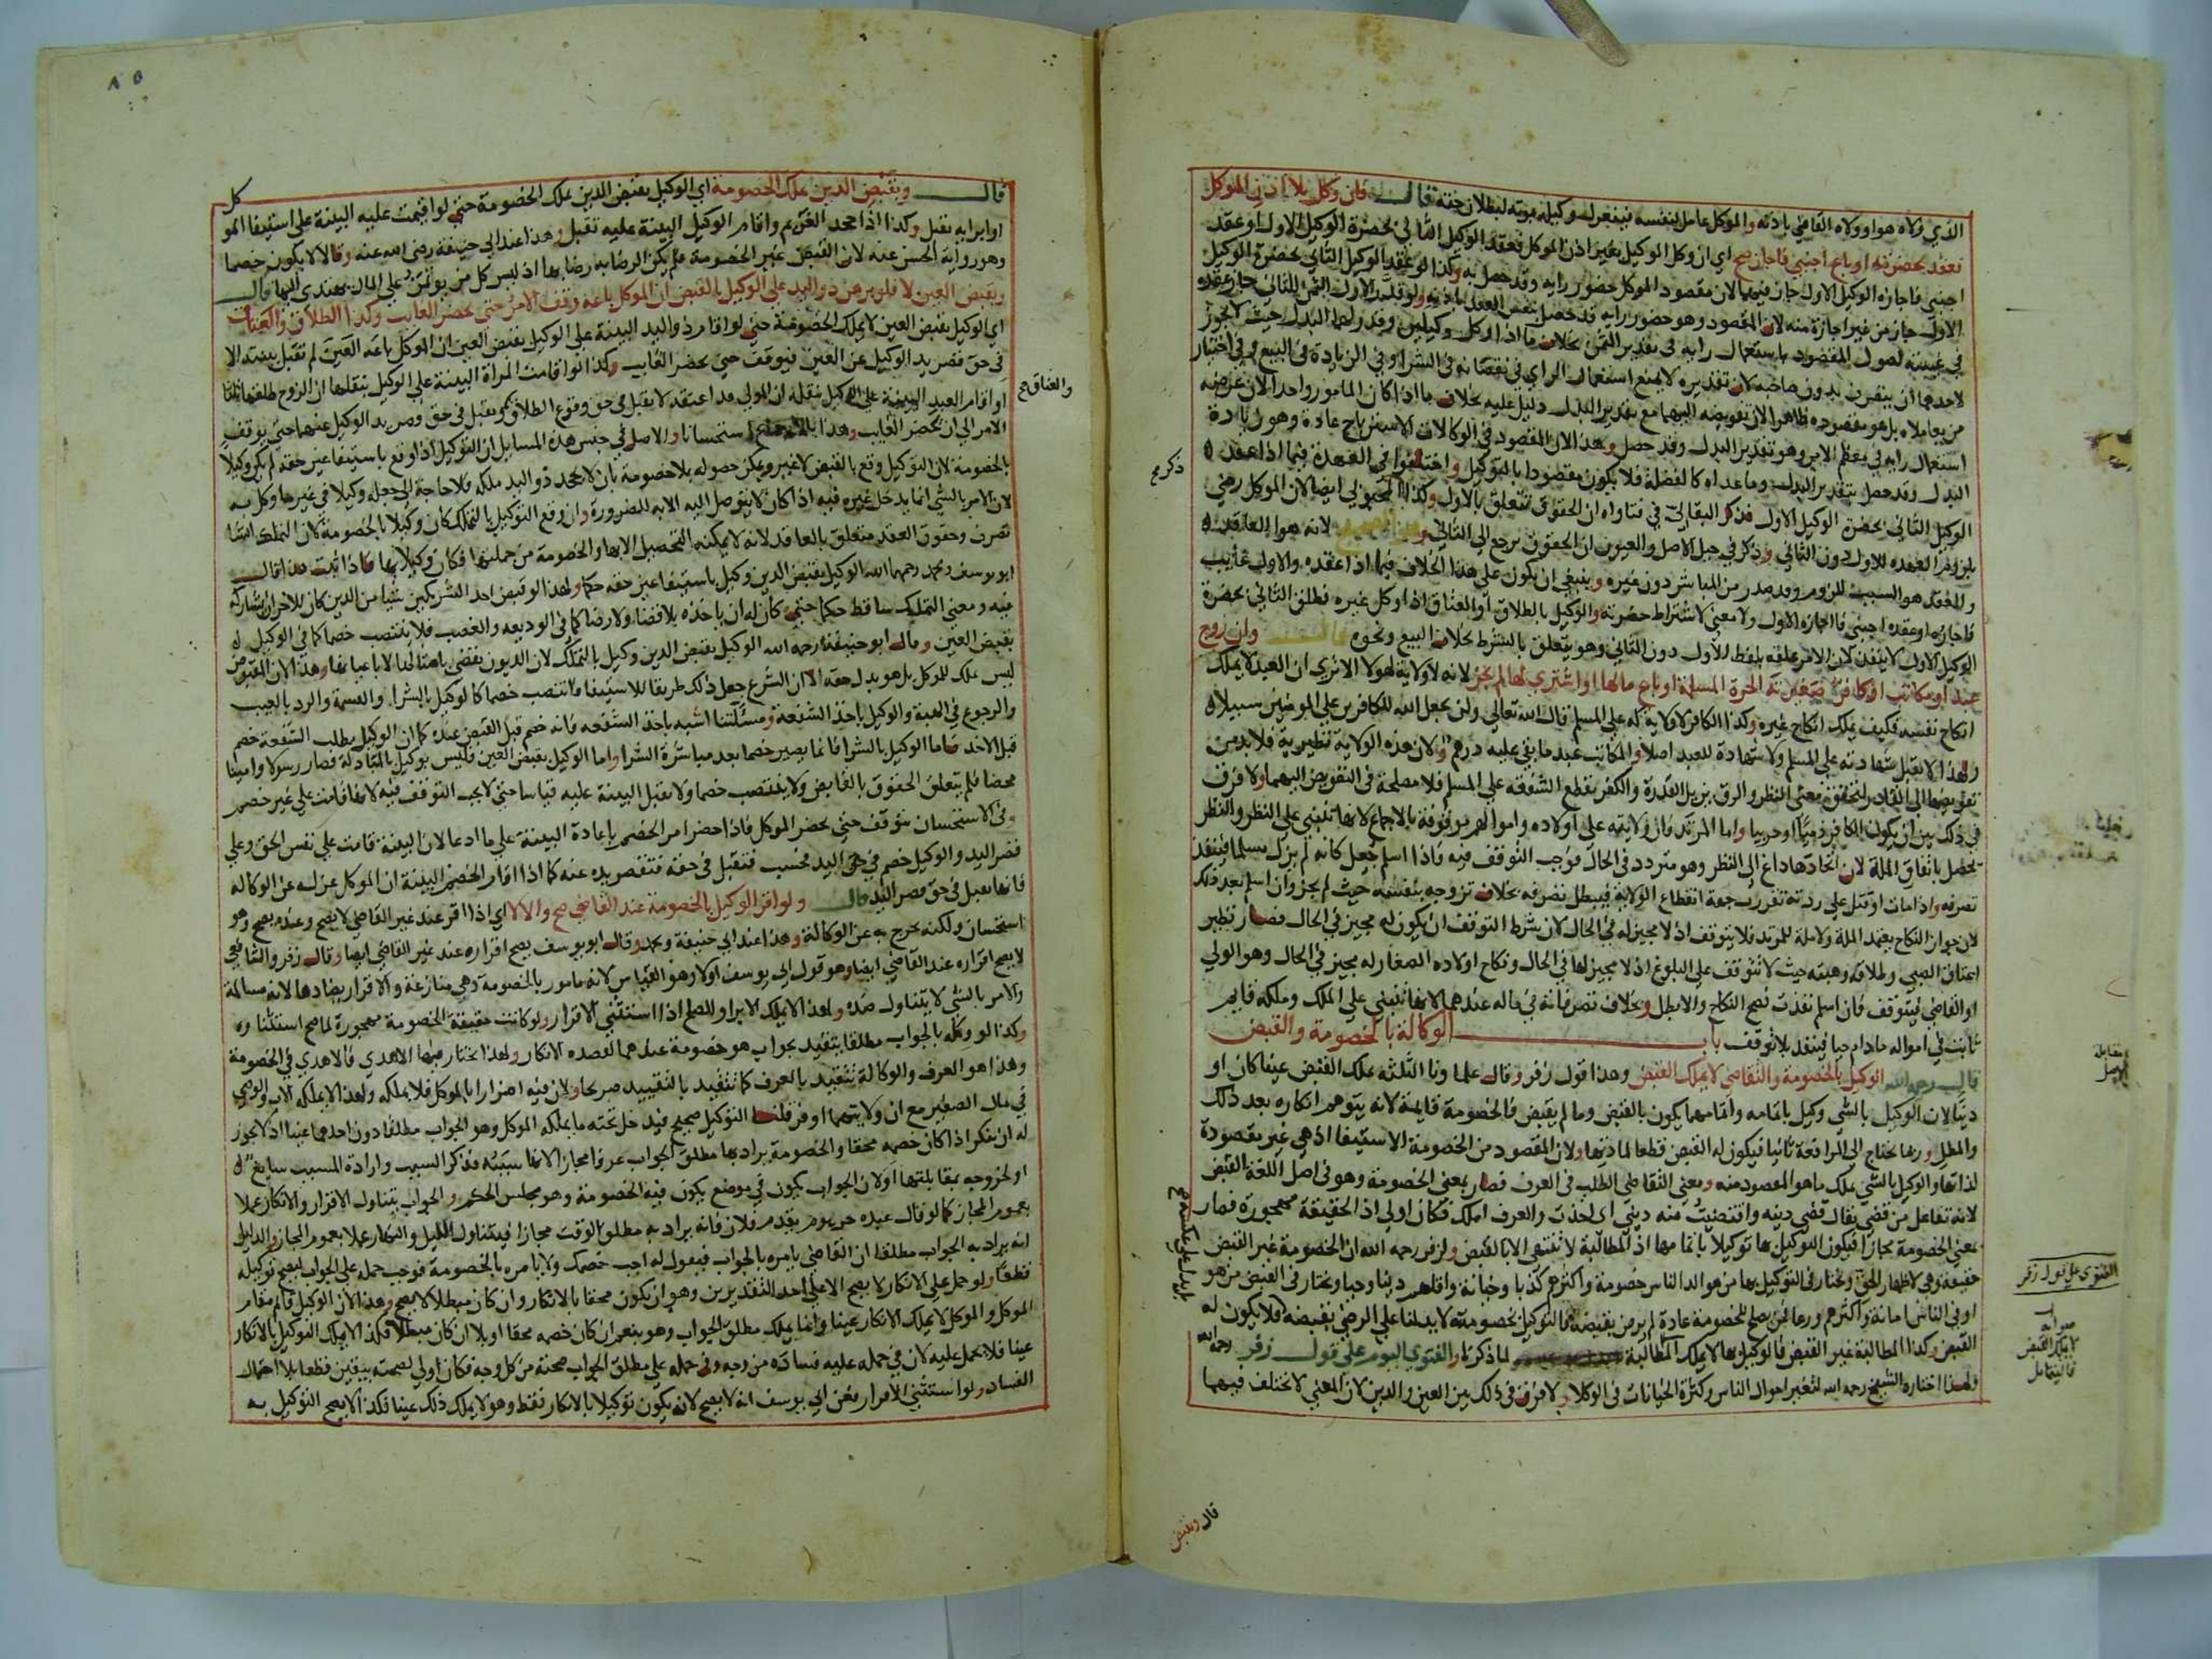 الذي ولاه هو او ولاه القاضي باذنه والموكل عامل لنفسه فينعزل وكيله بموته لبطلان حقه قال فان وكل بلا اذن الموكل
فعقد بحضرته او باع اجنبي فاجاز صح اي ان وكل الوكيل بغير اذن الموكل فعقد الوكيل الثاني بحضرة الوكيل الاول او عقد
اجنبي فاجازه الوكيل الاول جاز فيهما لان مقصود الموكل حضور رايه وقد حصل به وكذا لو عقد الوكيل الثاني بحضرة الوكيل
الاول جاز من غير اجازة منه لان المقصود وهو حضور رايه قد حصل
في غيبته لحصول المقصود باستعمال رايه في تقدير الثمن بخلاف ما اذا وكل وكيلين وقدر لهما البدل حيث لا يجوز
لاحدهما ان ينفرد بدون صاحبه لان تقديره لا يمنع استعمال الراي في نقصانه في الشراء وفي الزيادة في البيع وفي اختيار
من يعامله بل هو مقصوده ظاهرا لان تفويضه اليهما مع تقدير البدل دليل عليه بخلاف ما اذا كان المامور واحدا لان غرضه
استعمال رايه في معظم الامر وهو تقدير البدل وقد حصل وهذا لان المقصود في الوكالات الاسترباح عادة وهو زيادة
البدل وقد حصل بتقدير البدل وما عداه كالفضلة فلا يكون مقصودا بالتوكيل واختلفوا في العهدة فيما اذا عقد
الوكيل الثاني بحضرة الوكيل الاول فذكر البقالي في فتاواه ان الحقوق تتعلق بالاول وكذا المحبوبي ايضا لان الموكل رضي
بلزوم العهدة للاول دون الثاني وذكر في حيل الاصل والعيون ان الحقوق ترجع الى الثاني لانه هو العاقد
والعقد هو السبب للزوم وقد صدر من المباشر دون غيره وينبغي ان يكون على هذا الخلاف فيما اذا عقده والاول غايب
فاجازه او عقده اجنبي فاجازه الاول ولا معنى لاشتراط حضرته والوكيل بالطلاق او العتاق اذا وكل غيره فطلق الثاني بحضرة
الوكيل الاول لا ينفذ لان الامر علقه بلفظ الاول دون الثاني وهو يتعلق بالشرط بخلاف البيع ونحوه قال وان زوج
عبد او مكاتب او كافر صغيرته الحرة المسلمة او باع مالها او اشترى لها لم يجز لانه لا ولاية لهولا الا ترى ان العبد لا يملك
انكاح نفسه فكيف يملك انكاح غيره وكذا الكافر لا ولاية له على المسلم قال الله تعالى ولن يجعل الله للكافرين على المومنين سبيلا
ولهذا لا تقبل شهادته على المسلم ولا شهادة للعبد اصلا والمكاتب عبد ما بقي عليه درهم ولان هذه الولاية نظرية فلا بد من
تفويضها الى القادر لتحقق معنى النظر والرق يزيل القدرة والكفر يقطع الشفقة على المسلم فلا مصلحة في التفويض اليهما ولا فرق
في ذلك بين ان يكون الكافر ذميا او حربيا واما المرتد فان ولايته على اولاده واموالهم موقوفة بالاجماع لانها تنبني على النظر والنظر
يحصل باتفاق الملة لان اتحادها داع الى النظر وهو متردد في الحال فوجب التوقف فيه فاذا اسلم جعل كانه لم يزل مسلما فينفذ
تصرفه واذا مات او قتل على ردته تقرر جهة انقطاع الولاية فيبطل تصرفه بخلاف تزوجه بنفسه حيث لم يجز وان اسلم بعد ذلك
لان جواز النكاح يعتمد الملة ولا ملة للمرتد فلا يتوقف اذ لا مجيز له في الحال لان شرط التوقف ان يكون له مجيز في الحال فصار نظير
اعتاق الصبي وطلاقه وهبته حيث لا تتوقف على البلوغ اذ لا مجيز لها في الحال ونكاح اولاده الصغار له مجيز في الحال وهو الولي
او القاضي فيتوقف فان اسلم نفذت نصح النكاح والا بطل وبخلاف تصرفاته في ماله عندهما لانها تنبني على الملك وملكه قايم
ثابت في امواله ما دام حيا فينفذ بلا توقف باب الوكالة بالخصومة والقبض
قال رحمه الله الوكيل بالخصومة والتقاضي لا يملك القبض وهذا قول زفر وقال علماونا الثلثة يملك القبض عينا كان او
دينا لان الوكيل بالشي وكيل باتمامه واتمامهما يكون بالقبض وما لم يقبض فالخصومة قايمة لانه يتوهم انكاره بعد ذلك
والمطل وربما يحتاج الى المرافعة ثانيا فيكون له القبض قطعا لمادتها ولان المقصود من الخصومة الاستيفا اذ هي غير مقصودة
لذاتها والوكيل بالشي يملك ما هو المقصود منه ومعنى التقاضي الطلب في العرف فصار بمعنى الخصومة وهو في اصل اللغة القبض
لانه تفاعل من قضى يقال قضى دينه واقتضيت منه ديني اي اخذت والعرف املك فكان اولى اذ الحقيقة مهجورة فصار
بمعنى الخصومة مجازا فيكون التوكيل بها توكيلا باتمامها اذ المطالبة لا تنتهي الا بالقبض ولزفر رحمه الله ان الخصومة غير القبض
حقيقة وهي لاظهار الحق ويختار في التوكيل بها من هو الد الناس خصومة واكثرهم كذبا وخيانة واقلهم دينا وحيا ويختار في القبض من هو
اوفى الناس امانة واكثرهم ورعا فمن يصلح للخصومة عادة لم يرض بقبضه فالتوكيل بخصومته لا يدلنا على الرضى بقبضه فلا يكون له
القبض وكذا المطالبة غير القبض فالوكيل بها لا يملك المطالبة لما ذكرنا والفتوى اليوم على قول زفر رحمه الله
ولهذا اختاره الشيخ رحمه الله لتغير احوال الناس وكثرة الخيانات في الوكلا ولا فرق في ذلك بين العين والدين لان المعنى لا يختلف فيهما
ذكر صح
الفتوى على قول زفر
صوابه
لا يملك القبض
فاليتامل
قال وبقبض
٨٥
قال وبقبض الدين يملك الخصومة اي الوكيل بقبض الدين يملك الخصومة حتى لو اقيمت عليه البينة على استيفا الموكل
او ابرايه تقبل وكذا اذا جحد الغريم واقام الوكيل البينة عليه تقبل وهذا عند ابي حنيفة رضي الله عنه وقالا لا يكون خصما
وهو رواية الحسن عنه لان القبض غير الخصومة فلم يكن الرضا به رضا بها اذ ليس كل من يوتمن على المال يهتدي اليها قال
وبقبض العين لا فلو برهن ذو اليد على الوكيل بالقبض ان الموكل باعه وقف الامر حتى يحضر الغايب وكذا الطلاق والعتاق
اي الوكيل بقبض العين لا يملك الخصومة حتى لو اقام ذو اليد البينة على الوكيل بقبض العين ان الموكل باعه العين لم تقبل بينته الا
في حق قصر يد الوكيل عن العين فيتوقف حتى يحضر الغايب وكذا لو اقامت المراة البينة على الوكيل بنقلها ان الزوج طلقها ثلاثا
او اقام العبد البينة على الوكيل بنقله ان المولى قد اعتقه لا تقبل في حق وقوع الطلاق وتقبل في حق قصر يد الوكيل عنهما حتى يوقف
الامر الى ان يحضر الغايب وهذا استحسانا والاصل في جنس هذه المسايل ان التوكيل اذا وقع باستيفا عين حقه لم يكن وكيلا
بالخصومة لان التوكيل وقع بالقبض لا غير ويمكن حصوله بلا خصومة بان لا يجحد ذو اليد ملكه فلا حاجة الى جعله وكيلا في غير ما وكل به
لان الامر بالشي انما يدخل غيره فيه اذا كان لا يتوصل اليه الا به للضرورة وان وقع التوكيل بالتملك كان وكيلا بالخصومة لان التملك انشا
تصرف وحقوق العقد متعلق بالعاقد لانه لا يمكنه التحصيل الا بها والخصومة من جملتها فكان وكيلا بها فاذا ثبت هذا قال
ابو يوسف ومحمد رحمهما الله الوكيل بقبض الدين وكيل باستيفا عين حقه حكما ولهذا لو قبض احد الشريكين شيئا من الدين كان للاخر ان يشاركه
فيه ومعنى التملك ساقط حكما حتى كان له ان ياخذه بلا قضا ولا رضا كما في الوديعه والغصب فلا ينتصب خصما كما في الوكيل
بقبض العين وقال ابو حنيفة رحمه الله الوكيل بقبض الدين وكيل بالتملك لان الديون تقضى بامثالها لا باعيانها وهذا لان المقبوض
ليس ملك للموكل بل هو بدل حقه الا ان الشرع جعل ذلك طريقا للاستيفا فانتصب خصما كالوكيل بالشرا والقسمة والرد بالعيب
والرجوع في الهبة والوكيل باخذ الشفعة ومسئلتنا اشبه باخذ الشفعه فانه خصم قبل القبض عنده كما ان الوكيل بطلب الشفعة خصم
قبل الاخذ فاما الوكيل بالشرا فانما يصير خصما بعد مباشرة الشرا واما الوكيل بقبض العين فليس بوكيل بالمبادلة فصار رسولا وامينا
محضا فلم يتعلق الحقوق بالقابض ولا ينتصب خصما ولا تقبل البينة عليه قياسا حتى لا يجب التوقف فيه لانها قامت على غير خصم
وفي الاستحسان يتوقف حتى يحضر الموكل فاذا حضر امر الخصم باعادة البينة على ما ادعا لان البينة قامت على نفس الحق وعلى
قصر اليد والوكيل خصم في حق اليد فحسب فتقبل في حقه فتقصر يده عنه كما اذا اقام الخصم البينة ان الموكل عزله عن الوكالة
فانها تقبل في حق قصر اليد قال ولو اقر الوكيل بالخصومة عند القاضي صح والا لا اي اذا اقر عند غير القاضي لا يصح وعنده يصح وهو
استحسان ولكنه يخرج به عن الوكالة وهذا عند ابي حنيفة ومحمد وقال ابو يوسف يصح اقراره عند غير القاضي ايضا وقال زفر والشافعي
لا يصح اقراره عند القاضي ايضا وهو قول ابي يوسف اولا وهو القياس لانه مامور بالخصومة وهي منازعة والاقرار يضادها لانه مسالمة
والامر بالشي لا يتناول ضده ولهذا لا يملك الابرا والصلح اذا استثنى الاقرار ولو كانت حقيقة الخصومة مهجورة لما صح استثناوه
وكذا لو وكله بالجواب مطلقا يتقيد بجواب هو خصومة عندهما لقصده الانكار ولهذا اختار فيها الاهدى فالاهدى في الخصومة
وهذا هو العرف والوكالة تتقيد بالعرف كما تتقيد بالتقييد صريحا ولان فيه اضرارا بالموكل فلا يملكه ولهذا لا يملكه الاب والوصي
في مال الصغير مع ان ولايتهما اوفر قلنا التوكيل صحيح فيدخل تحته ما يملكه الموكل وهو الجواب مطلقا دون احدهما عينا اذ لا يجوز
له ان ينكر اذا كان خصمه محقا والخصومة يراد بها مطلق الجواب عرفا مجازا لانها سببه فذكر السبب وارادة المسبب سايغ
او لخروجه بمقابلتها او لان الجواب يكون في موضع يكون فيه الخصومة وهو مجلس الحكم والجواب يتناول الاقرار والانكار عملا
بعموم المجاز كما لو قال عبده حر يوم يقدم فلان فانه يراد به مطلق الوقت مجازا فيتناول الليل والنهار عملا بعموم المجاز والدليل
انه يراد به الجواب مطلقا ان القاضي يامره بالجواب فيقول له اجب خصمك ولا يامره بالخصومة فوجب حمله على الجواب ليصح توكيله
قطعا ولو حمل على الانكار لا يصح الا على احد التقديرين وهو ان يكون محقا بالانكار وان كان مبطلا لا يصح وهذا لان الوكيل قايم مقام
الموكل والموكل لا يملك الانكار عينا وانما يملك مطلق الجواب وهو بنعم ان كان خصمه محقا او بلا ان كان مبطلا فكذا لا يملك التوكيل بالانكار
عينا فلا يحمل عليه لان في حمله عليه فساده من وجه وفي حمله على مطلق الجواب صحته من كل وجه فكان اولى لصحته بيقين قطعا بلا احتمال
الفساد ولو استثنى الاقرار فعن ابي يوسف انه لا يصح لانه يكون توكيلا بالانكار فقط وهو لا يملك ذلك عينا فكذا لا يصح التوكيل به
والعتاق صح